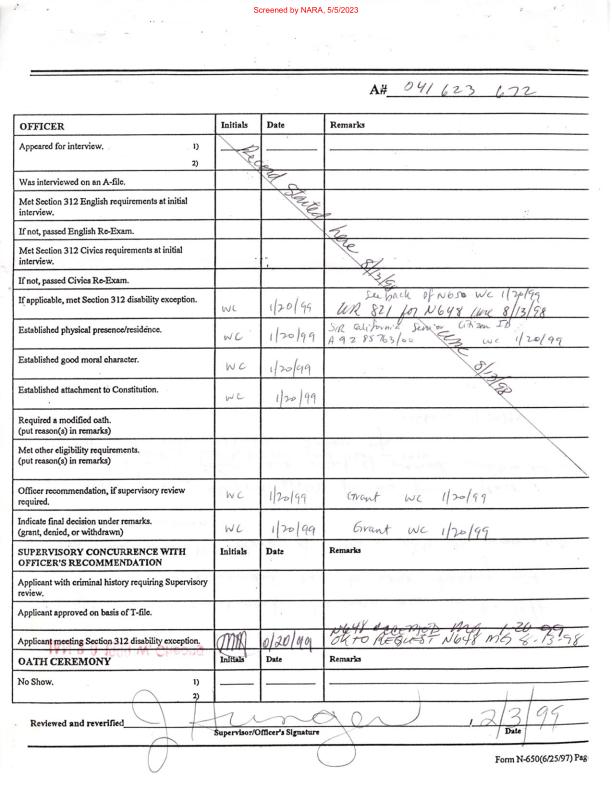 Screened by NARA, 5/5/2023
A# 041 623 672
OFFICER Initials Date Remarks
Appeared for interview. 1)
2)
Record started here 8/13/98
Was interviewed on an A-file.
Met Section 312 English requirements at initial
interview.
If not, passed English Re-Exam.
Met Section 312 Civics requirements at initial
interview.
If not, passed Civics Re-Exam.
See back of N650 WC 1/20/99
If applicable, met Section 312 disability exception. WC 1/20/99 WR 821 for N648 8/13/98
Established physical presence/residence. WC 1/20/99 S/R California Senior Citizen ID
A92 85763/00 WC 1/20/99
8/13/98
Established good moral character. WC 1/20/99
Established attachment to Constitution. WC 1/20/99
Required a modified oath.
(put reason(s) in remarks)
Met other eligibility requirements.
(put reason(s) in remarks)
Officer recommendation, if supervisory review
required. WC 1/20/99 Grant WC 1/20/99
Indicate final decision under remarks.
(grant, denied, or withdrawn) WC 1/20/99 Grant WC 1/20/99
SUPERVISORY CONCURRENCE WITH
OFFICER'S RECOMMENDATION Initials Date Remarks
Applicant with criminal history requiring Supervisory
review.
Applicant approved on basis of T-file.
N648 MG 1-20-99
Applicant meeting Section 312 disability exception. OK TO REQUEST N648 MG 8-13-98
OATH CEREMONY Initials Date Remarks
No Show. 1)
2)
Reviewed and reverified 2/3/99
Supervisor/Officer's Signature Date
Form N-650(6/25/97) Pag